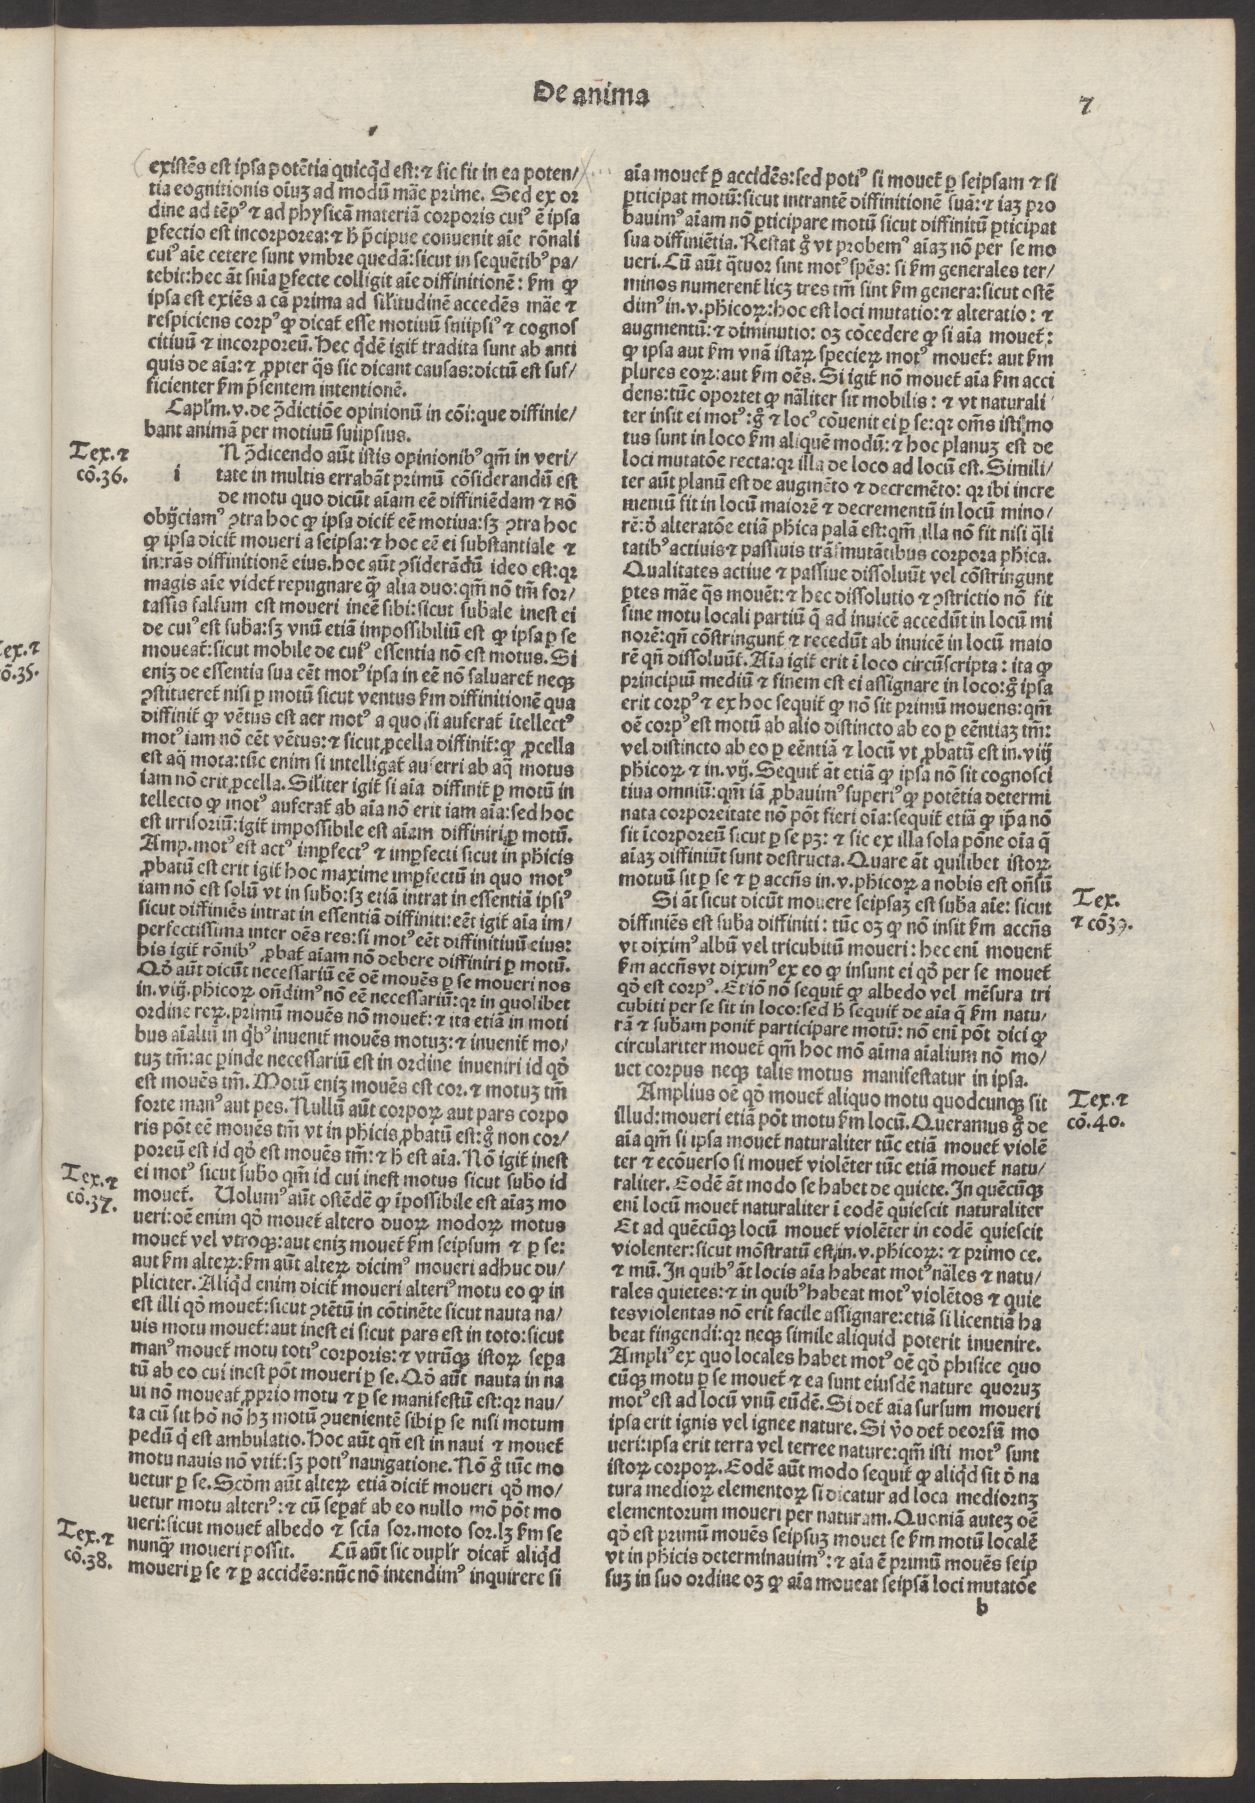 De anima
7
existẽs est ipsa potẽtia quicq̃d est: ⁊ sic fit in ea poten/
tia cognitionis oĩuꝫ ad modũ mãe prime. Sed ex or
dine ad tẽpꝰ ⁊ ad physicã materiã corporis cuiꝰ ẽ ipsa
ꝑfectio est incorporea: ⁊ h̃ p̃cipue conuenit aĩe rõnali
cuiꝰ aĩe cetere sunt vmbre quedã: sicut in sequẽtibꝰ pa-
tebit: hec ãt snĩa ꝑfecte colligit aĩe diffinitionẽ: fm ꝙ
ipsa est exiẽs a cã prima ad silitudinẽ accedẽs mãe ⁊
respiciens corpꝰ ꝙ dicat̃ esse motiuũ suiipsiꝰ ⁊ cognos
citiuũ ⁊ incorporeũ. Hec q̃dẽ igit̃ tradita sunt ab anti
quis de aĩa: ⁊ ꝓpter q̃s sic dicant causas: dictũ est suf-
ficienter fm p̃sentem intentionẽ.
Capl̃m. v. de ꝯ̃dictiõe opinionũ in cõi: que diffinie/
bant animã per motiuũ suiipsius.
Tex. ⁊
cõ. 36.
i
N ꝯ̃dicendo aũt istis opinionibꝰ qm̃ in veri/
tate in multis errabãt primũ cõsiderandũ est
de motu quo dicũt aĩam eẽ diffiniẽdam ⁊ nõ
obijciamꝰ ꝯtra hoc ꝙ ipsa dicit̃ eẽ motiua: sꝫ ꝯtra hoc
ꝙ ipsa dicit̃ moueri a seipsa: ⁊ hoc eẽ ei substantiale ⁊
intrãs diffinitionẽ eius. hoc aũt ꝯsiderãdũ ideo est: qꝛ
magis aĩe videt̃ repugnare q̃ʒ alia duo: qm̃ nõ tm̃ for/
tassis falsum est moueri ineẽ sibi: sicut suб̃ale inest ei
de cuiꝰ est suб̃a: sꝫ vnũ etiã impossibiliũ est ꝙ ipsa ꝑ se
moueat̃: sicut mobile de cuiꝰ essentia nõ est motus. Si
eniꝫ de essentia sua eẽt motꝰ ipsa in eẽ nõ saluaret̃ neqꝫ
ꝯstitueret̃ nisi ꝑ motũ sicut ventus fm diffinitionẽ qua
diffinit̃ ꝙ vẽtus est aer motꝰ a quo si auferat̃ ĩtellectꝰ
motꝰ iam nõ eẽt vẽtus: ⁊ sicut ꝓcella diffinit̃: ꝙ ꝓcella
est aq̃ mota: tũc enim si intelligat̃ auferri ab aq̃ motus
iam nõ erit ꝓcella. Silit̃er igit̃ si aĩa diffinit̃ ꝑ motũ in
tellecto ꝙ motꝰ auferat̃ ab aĩa nõ erit iam aĩa: sed hoc
est irrisoriũ: igit̃ impossibile est aĩam diffiniri ꝑ motũ.
Amp. motꝰ est actꝰ imꝑfectꝰ ⁊ imꝑfecti sicut in phicis
ꝓbatũ est erit igit̃ hoc maxime imꝑfectũ in quo motꝰ
iam nõ est solũ vt in suб̃o: sꝫ etiã intrat in essentiã ipsiꝰ
sicut diffiniẽs intrat in essentiã diffiniti: eẽt igit̃ aĩa im/
perfectissima inter oẽs res: si motꝰ eẽt diffinitiuũ eius:
his igit̃ rõnibꝰ ꝓbat̃ aĩam nõ debere diffiniri ꝑ motũ.
Qõ aũt dicũt necessariũ eẽ oẽ mouẽs ꝑ se moueri nos
in. viij. phicoꝝ oñdimꝰ nõ eẽ necessariũ: qꝛ in quolibet
ordine reꝝ. primũ mouẽs nõ mouet̃: ⁊ ita etiã in moti
bus aĩaliũ in q̃bꝰ inuenit̃ mouẽs motuꝫ: ⁊ inuenit̃ mo/
tuꝫ tm̃: ac ꝑinde necessariũ est in ordine inueniri id qõ
est mouẽs tm̃. Motũ eniꝫ mouẽs est cor. ⁊ motuꝫ tm̃
forte manꝰ aut pes. Nullũ aũt corpoꝝ aut pars corpo
ris põt eẽ mouẽs tm̃ vt in phicis ꝓbatũ est: g̃ non cor/
poreũ est id qõ est mouẽs tm̃: ⁊ h̃ est aĩa. Nõ igit̃ inest
ei motꝰ sicut suб̃o qm̃ id cui inest motus sicut suб̃o id
Tex. ⁊
cõ. 37.
mouet̃. Uolumꝰ aũt ostẽdẽ ꝙ ĩpossibile est aĩaꝫ mo
ueri: oẽ enim qõ mouet̃ altero duoꝝ modoꝝ motus
mouet̃ vel vtroqꝫ: aut eniꝫ mouet̃ fm seipsum ⁊ ꝑ se:
aut fm alteꝝ: fm aũt alteꝝ dicimꝰ moueri adhuc du/
pliciter. Aliq̃d enim dicit̃ moueri alteriꝰ motu eo ꝙ in
est illi qõ mouet̃: sicut ꝯtẽtũ in cõtinẽte sicut nauta na/
uis motu mouet̃: aut inest ei sicut pars est in toto: sicut
manꝰ mouet̃ motu totiꝰ corporis: ⁊ vtrũqꝫ istoꝝ seꝑa
tũ ab eo cui inest põt moueri ꝑ se. Qõ aũt nauta in na
ui nõ moueat̃ ꝓprio motu ⁊ ꝑ se manifestũ est: qꝛ nau/
ta cũ sit hõ nõ hꝫ motũ ꝯuenientẽ sibi ꝑ se nisi motum
pedũ q̃ est ambulatio. Hoc aũt qñ est in naui ⁊ mouet̃
motu nauis nõ vtit̃: sꝫ potiꝰ nauigatione. Nõ g̃ tũc mo
uetur ꝑ se. Scõm aũt alteꝝ etiã dicit̃ moueri qõ mo/
uetur motu alteriꝰ: ⁊ cũ seꝑat̃ ab eo nullo mõ põt mo
Tex. ⁊
cõ. 38.
ueri: sicut mouet̃ albedo ⁊ scĩa sor. moto sor. lꝫ fm se
nunq̃ʒ moueri possit. Cũ aũt sic duplr̃ dicat̃ aliq̃d
moueri ꝑ se ⁊ ꝑ accidẽs: nũc nõ intendimꝰ inquirere si
Tex. ⁊
cõ. 35.
aĩa mouet̃ ꝑ accidẽs: sed potiꝰ si mouet̃ ꝑ seipsam ⁊ si
ꝑticipat motũ: sicut intrantẽ diffinitionẽ suã: ⁊ iaꝫ pro
bauimꝰ aĩam nõ ꝑticipare motũ sicut diffinitũ ꝑticipat
sua diffiniẽtia. Restat g̃ vt probemꝰ aĩaꝫ nõ per se mo
ueri. Cũ aũt q̃tuor sint motꝰ spẽs: si fm generales ter/
minos numerent̃ licꝫ tres tm̃ sint fm genera: sicut ostẽ
dimꝰ in. v. phicoꝝ: hoc est loci mutatio: ⁊ alteratio: ⁊
augmentũ: ⁊ diminutio: oꝫ cõcedere ꝙ si aĩa mouet̃:
ꝙ ipsa aut fm vnã istaꝝ specieꝝ motꝰ mouet̃: aut fm
plures eoꝝ: aut fm oẽs. Si igit̃ nõ mouet̃ aĩa fm acci
dens: tũc oportet ꝙ nãliter sit mobilis: ⁊ vt naturali
ter insit ei motꝰ: g̃ ⁊ locꝰ cõuenit ei ꝑ se: qꝛ om̃s isti mo
tus sunt in loco fm aliquẽ modũ: ⁊ hoc planuꝫ est de
loci mutatõe recta: qꝛ illa de loco ad locũ est. Simili/
ter aũt planũ est de augmẽto ⁊ decremẽto: qꝛ ibi incre
mentũ fit in locũ maiorẽ ⁊ decrementũ in locũ mino/
rẽ: õ alteratõe etiã phica palã est: qm̃ illa nõ fit nisi q̃li
tatibꝰ actiuis ⁊ passiuis trãsmutãtibus corpora phica.
Qualitates actiue ⁊ passiue dissoluũt vel cõstringunt
ꝑtes mãe q̃s mouẽt: ⁊ hec dissolutio ⁊ ꝯstrictio nõ fit
sine motu locali partiũ q̃ ad inuicẽ accedũt in locũ mi
norẽ: qñ cõstringunt̃ ⁊ recedũt ab inuicẽ in locũ maio
rẽ qñ dissoluũt̃. Aĩa igit̃ erit ĩ loco circũscripta: ita ꝙ
principiũ mediũ ⁊ finem est ei assignare in loco: g̃ ipsa
erit corpꝰ ⁊ ex hoc sequit̃ ꝙ nõ sit primũ mouens: qm̃
oẽ corpꝰ est motũ ab alio distincto ab eo ꝑ eẽntiaꝫ tm̃:
vel distincto ab eo ꝑ eẽntiã ⁊ locũ vt ꝓbatũ est in. viij
phicoꝝ ⁊ in. vij. Sequit̃ ãt etiã ꝙ ipsa nõ sit cognosci
tiua omniũ: qm̃ iã ꝓbauimꝰ superiꝰ ꝙ potẽtia determi
nata corporeitate nõ põt fieri oĩa: sequit̃ etiã ꝙ ip̃a nõ
sit ĩcorporeũ sicut ꝑ se pꝫ: ⁊ sic ex illa sola põne oĩa q̃
aĩaꝫ diffiniũt sunt destructa. Quare ãt quilibet istoꝝ
motuũ sit ꝑ se ⁊ ꝑ accñs in. v. phicoꝝ a nobis est oñsũ
Tex.
⁊ cõ 39.
Si ãt sicut dicũt mouere seipsaꝫ est suб̃a aĩe: sicut
diffiniẽs est suб̃a diffiniti: tũc oꝫ ꝙ nõ insit fm accñs
vt diximꝰ albũ vel tricubitũ moueri: hec enĩ mouent̃
fm accñs vt diximꝰ ex eo ꝙ insunt ei qõ per se mouet̃
qõ est corpꝰ. Et iõ nõ sequit̃ ꝙ albedo vel mẽsura tri
cubiti per se sit in loco: sed h̃ sequit̃ de aĩa q̃ fm natu/
rã ⁊ suб̃am ponit̃ participare motũ: nõ enĩ põt dici ꝙ
circulariter mouet̃ qm̃ hoc mõ aĩma aĩalium nõ mo/
uet corpus neqꝫ talis motus manifestatur in ipsa.
Tex. ⁊
cõ. 40.
Amplius oẽ qõ mouet̃ aliquo motu quodcunqꝫ sit
illud: moueri etiã põt motu fm locũ. Queramus g̃ de
aĩa qm̃ si ipsa mouet̃ naturaliter tũc etiã mouet̃ violẽ
ter ⁊ ecõuerso si mouet̃ violẽter tũc etiã mouet̃ natu/
raliter. Eodẽ ãt modo se habet de quiete. In quẽcũqꝫ
enĩ locũ mouet̃ naturaliter ĩ eodẽ quiescit naturaliter
Et ad quẽcũqꝫ locũ mouet̃ violẽter in eodẽ quiescit
violenter: sicut mõstratũ est in. v. phicoꝝ: ⁊ primo ce.
⁊ mũ. In quibꝰ ãt locis aĩa habeat motꝰ nãles ⁊ natu/
rales quietes: ⁊ in quibꝰ habeat motꝰ violẽtos ⁊ quie
tes violentas nõ erit facile assignare: etiã si licentiã ha
beat fingendi: qꝛ neqꝫ simile aliquid poterit inuenire.
Ampliꝰ ex quo locales habet motꝰ oẽ qõ phisice quo
cũqꝫ motu ꝑ se mouet̃ ⁊ ea sunt eiusdẽ nature quoruꝫ
motꝰ est ad locũ vnũ eũdẽ. Si det̃ aĩa sursum moueri
ipsa erit ignis vel ignee nature. Si ṽo det̃ deorsũ mo
ueri: ipsa erit terra vel terree nature: qm̃ isti motꝰ sunt
istoꝝ corpoꝝ. Eodẽ aũt modo sequit̃ ꝙ aliq̃d sit õ na
tura medioꝝ elementoꝝ si dicatur ad loca mediorũꝫ
elementorum moueri per naturam. Quoniã auteꝫ oẽ
qõ est primũ mouẽs seipsuꝫ mouet se fm motũ localẽ
vt in phicis determinauimꝰ: ⁊ aĩa ẽ primũ mouẽs seip
suꝫ in suo ordine oꝫ ꝙ aĩa moueat seipsã loci mutatõe
b